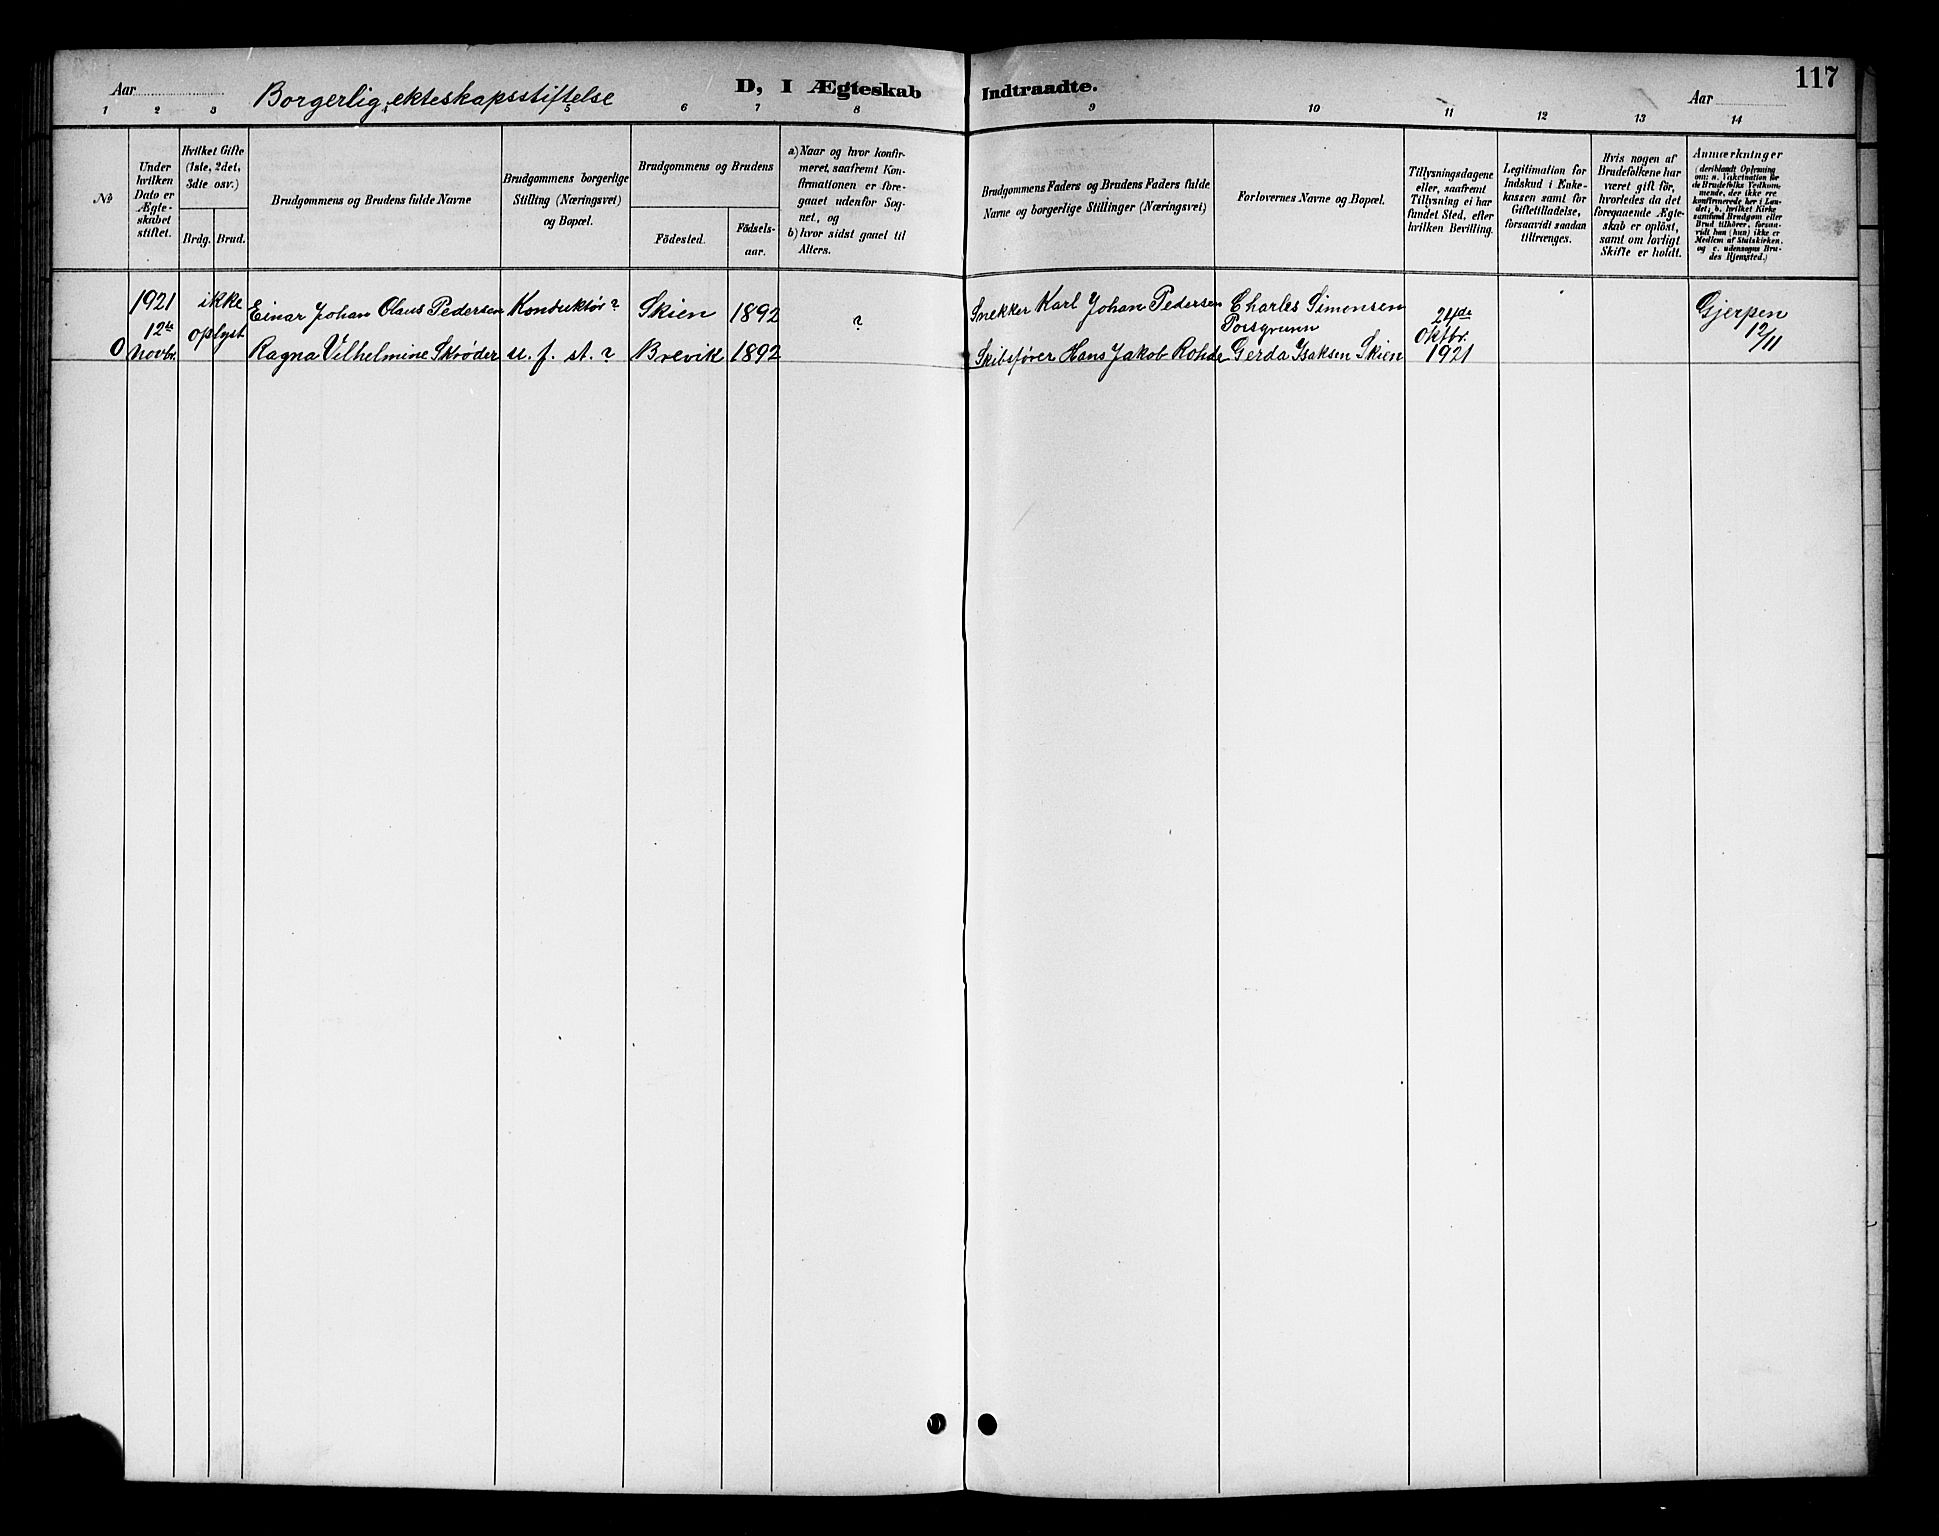 Aar
Borgerlig ekteskapsstiftelse
D, I Ægteskab
Indtraadte.
Aar
117
1 2 3 5 6 7 8 9 10 11 12 13 14
No
Under
hvilken
Dato er
Ægte-
skabet
stiftet.
Hvilket Gifte
(1ste, 2det,
3dte osv.)
Brdg. Brud.
Brudgommens og Brudens fulde Navne
Brudgommens borgerlige
Stilling (Næringsvei)
og Bopæl.
Brudgommens og Brudens
Födested.
Födsels-
aar.
a) Naar og hvor konfir-
meret, saafremt Kon-
firmationen er fore-
gaaet udenfor Sog-
net, og
b) hvor sidst gaaet til
Alters.
Brudgommens Faders og Brudens Faders fulde
Navne og borgerlige Stillinger (Næringsvei)
Forlovernes Navne og Bopæl.
Tillysningsdagene
eller, saafremt
Tillysning ei har
fundet Sted, efter
hvilken Bevilling.
Legitimation for
Indskud i Enke-
kassen samt for
Giftetilladelse,
forsaavidt saadan
tiltrænges.
Hvis nogen af
Brudefolkene har
været gift för,
hvorledes da det
foregaaende Ægte-
skab er oplöst,
samt om lovligt
Skifte er holdt.
Anmærkninger
(deriblandt Oplysning
om: a. Vakcination for
de Brudefolks Vedkom-
mende, der ikke ere
konfirmerede her i Lan-
det; b. hvilket Kirke
samfund Brudgom eller
Brud tilhörer, forsaa-
vidt han (hun) ikke er
Medlem af Statskirken,
og c. udensogns Bru-
des Hjemsted.)
1921 ikke Einar Johan Olaus Pedersen Konduktör? Skien 1892 ? Snekker Karl Johan Pedersen Charles Simonsen 24de Gjerpen
12te oplyst Porsgrunn Oktbr. 12/11
0 Novbr. Ragna Vilhelmine Skrøder u. f. st. ? Brevik 1892 Skibsfører Hans Jakob Rohde Gerda Isaksen Skien 1921